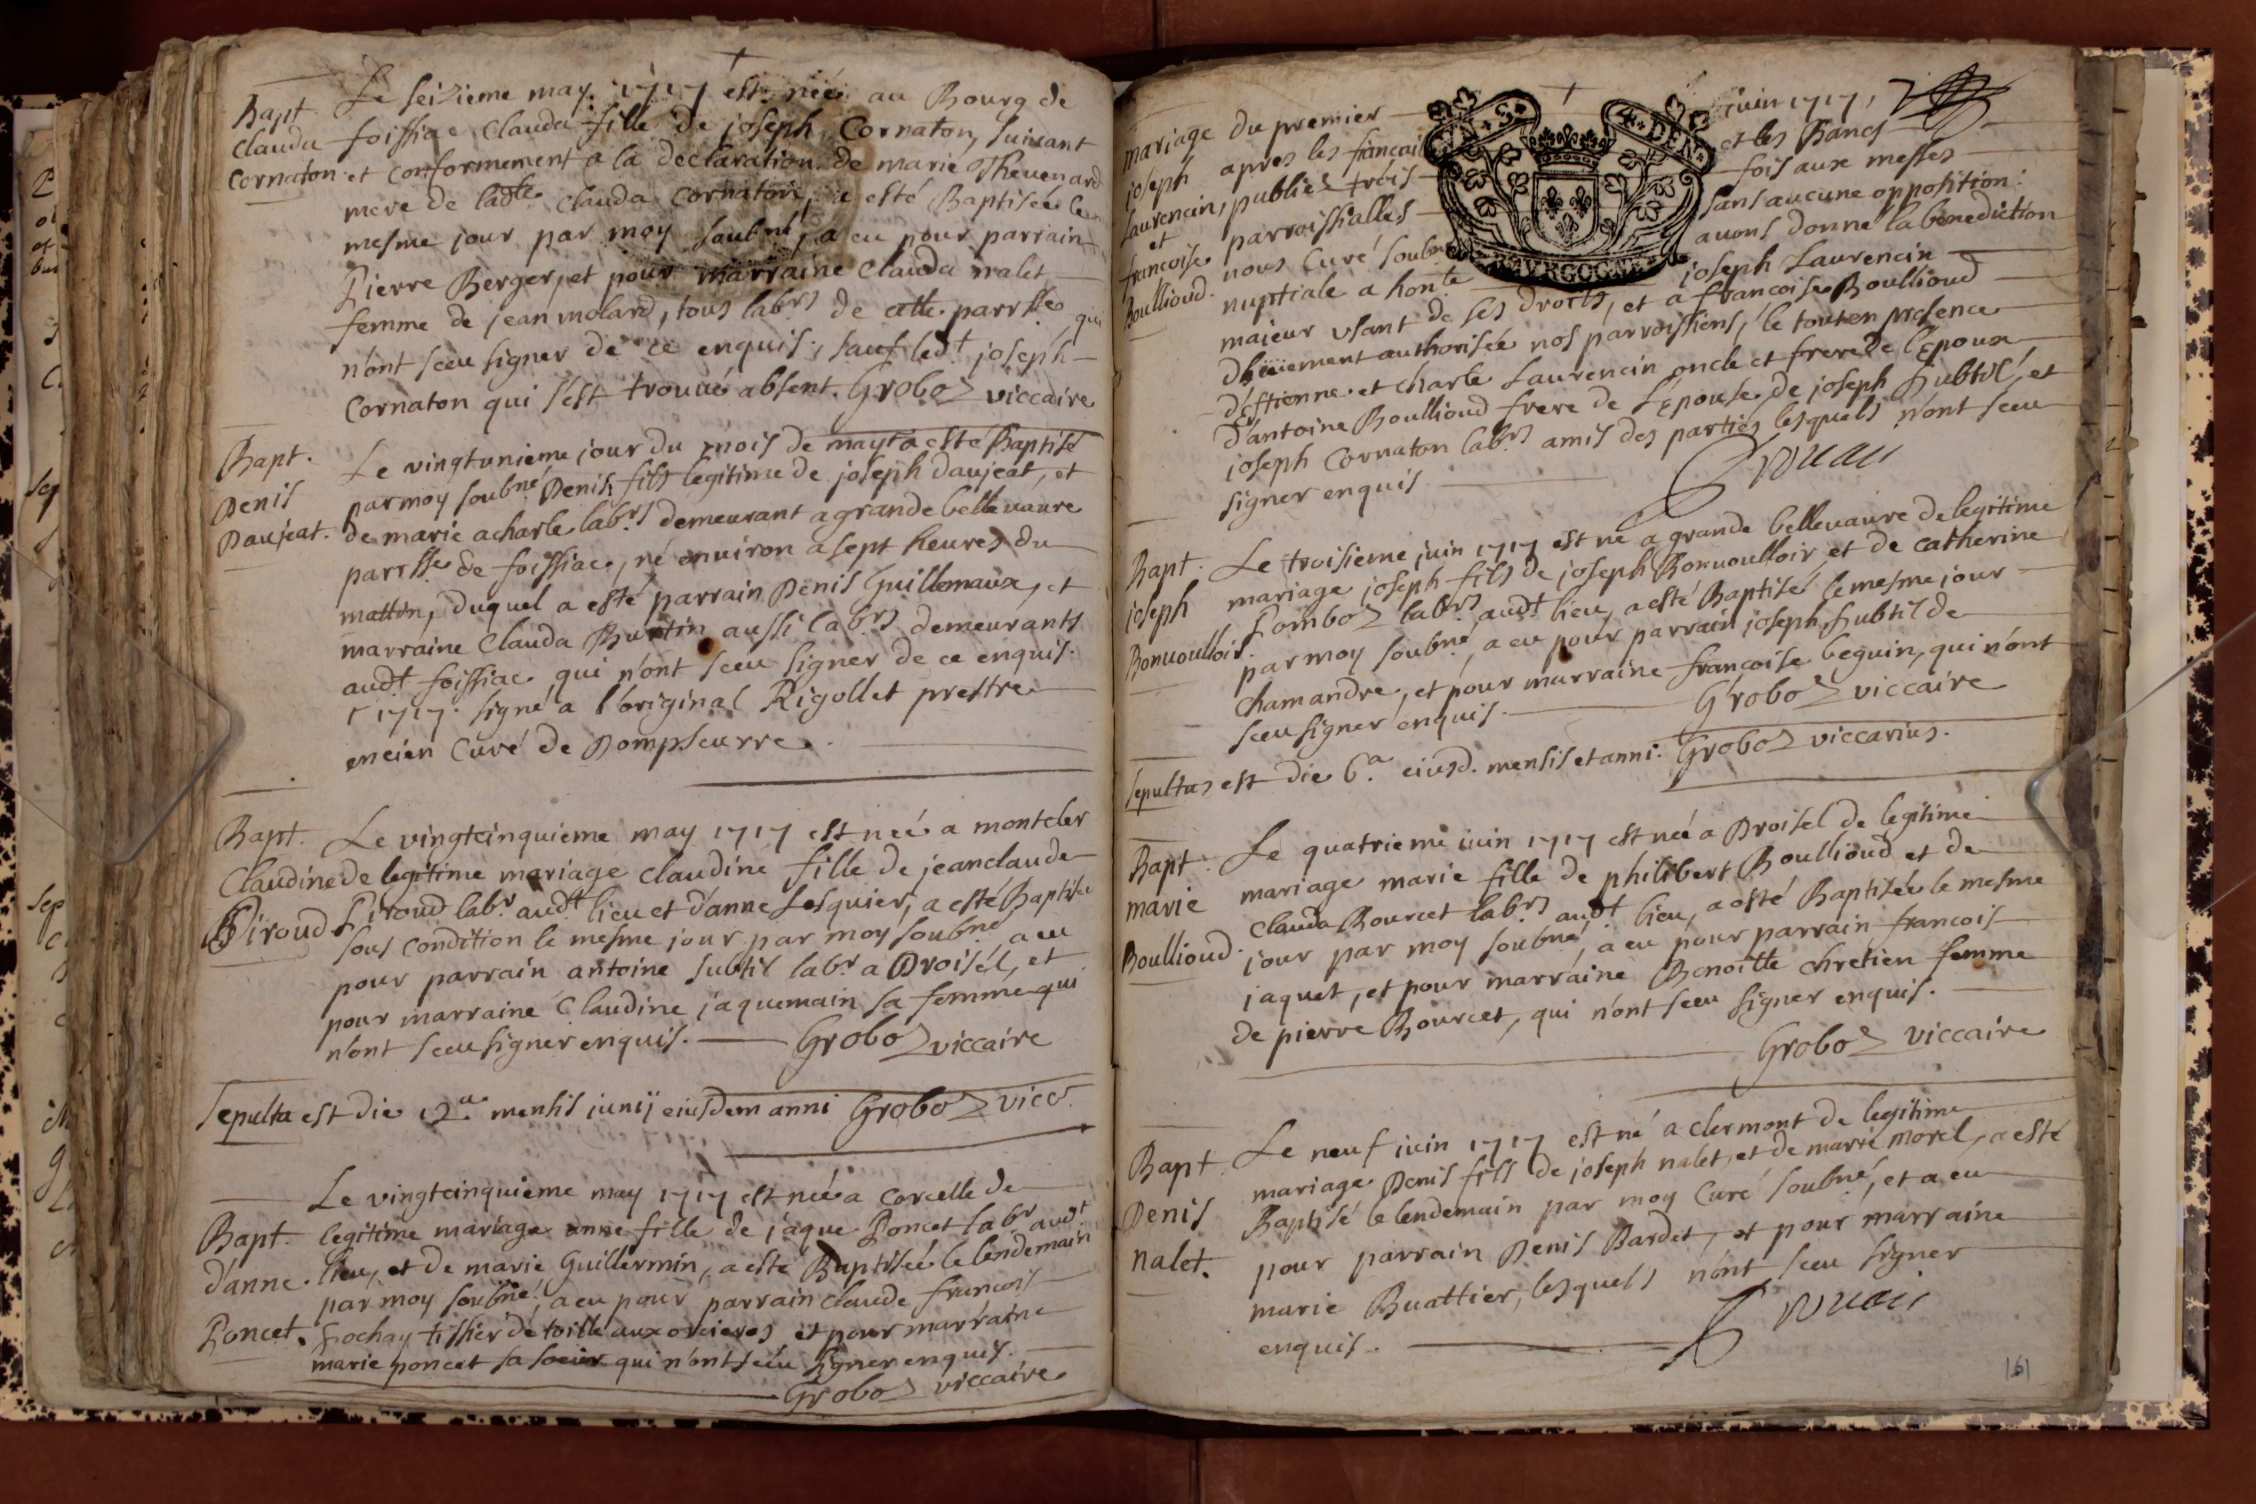 Bapt.
Clauda
Cornaton
Le seizieme may 1717 est née au Bourg de
foissiac Clauda fille de joseph Cornaton, suivant
et conformement a la declaration de marie Thevenard
mere de ladte clauda Cornaton, a esté Baptisée le
mesme jour par moy soubné, a eu pour parrain
Pierre Berger, et pour marraine Clauda nalet
femme de jean molard, tous labrs de cette parrsse qui
n'ont sceu signer de ce enquis, sauf ledt joseph
Cornaton qui s'est trouvé absent. Groboz viccaire
Bapt.
Denis
Daujeat.
Le vingtunieme jour du mois de may a esté Baptisé
par moy soubné Denis, fils legitime de joseph daujeat, et
de marie acharle labrs demeurant a grande bellevavre
parrsse de foissiac, né environ a sept heures du
mattin, duquel a esté parrain Denis Guillemaux, et
marraine Clauda Burtin aussi labrs demeurants
audt foissiac qui n'ont sceu signer de ce enquis.
1717. signé a l'original Rigollet prestre
encien Curé de Dompseurre.
Bapt.
Claudine
Piroud
Le vingtcinquieme may 1717 est née a montcler
de legitime mariage Claudine fille de jeanclaude
Piroud labr audt lieu et d'anne Lesquier, a esté Baptisée
sous condition le mesme jour par moy soubné, a eu
pour parrain antoine subtil labr a Droisel, et
pour marraine Claudine jaquemain sa femme qui
n'ont sceu signer enquis. Groboz viccaire
Sepulta est die 12a mensis junij eiusdem anni Groboz vicc.
Bapt.
d'anne
Poncet.
Le vingtcinquieme may 1717 est née a Corcelle de
legitime mariage anne fille de jaque Poncet labr audt
lieu, et de marie Guillermin, a esté Baptisée le lendemain
par moy soubné, a eu pour parrain Claude francois
Pochay tissier de toille aux orcieres et pour marraine
marie poncet sa soeur qui n'ont sceu signer enquis.
Groboz viccaire
mariage
joseph
Laurencin,
et
francoise
Boullioud.
du premier juin 1717,
apres les fiancai et les Bancs
publiés trois fois aux messes
parroissialles sans aucune opposition:
nous Curé soubné avons donné la benediction
nuptiale a honte joseph Laurencin
majeur usant de ses droits, et a francoise Boullioud
dhüement authorisée nos parroissiens, le tout en presence
d'estienne et charle Laurencin oncle et frere de l'Epoux
d'antoine Boullioud frere de L'Epouse de joseph subtil, et
joseph Cornaton labrs amis des parties lesquels n'ont sceu
signer enquis
BOVRGOGNE
Bapt.
joseph
Bonvoulloir.
Le troisieme juin 1717 est né a grande bellevavre de legitime
mariage joseph fils de joseph Bonvoulloir, et de catherine
Lomboz labrs audt lieu, a esté Baptisé le mesme jour
par moy soubné, a eu pour parrain joseph subtil de
Chamandre, et pour marraine francoise beguin, qui n'ont
sceu signer enquis. Groboz viccaire
sepultus est die 6.a eiusd. mensis et anni. Groboz viccarius.
Bapt.
marie
Boullioud.
Le quatrieme juin 1717 est née a Droisel de legitime
mariage marie fille de philibert Boullioud et de
Clauda Bourcet labrs audt lieu, a esté Baptisée le mesme
jour par moy soubné, a eu pour parrain francois
jaquet, et pour marraine Benoitte chretien femme
de pierre Bourcet, qui n'ont sceu signer enquis.
Groboz viccaire
Bapt.
Denis
nalet.
Le neuf juin 1717 est né a clermont de legitime
mariage Denis fils de joseph nalet, et de marie morel, a esté
Baptisé le lendemain par moy Curé soubné, et a eu
pour parrain Denis Bardet, et pour marraine
marie Buattier, lesquels n'ont sceu signer
enquis.
161